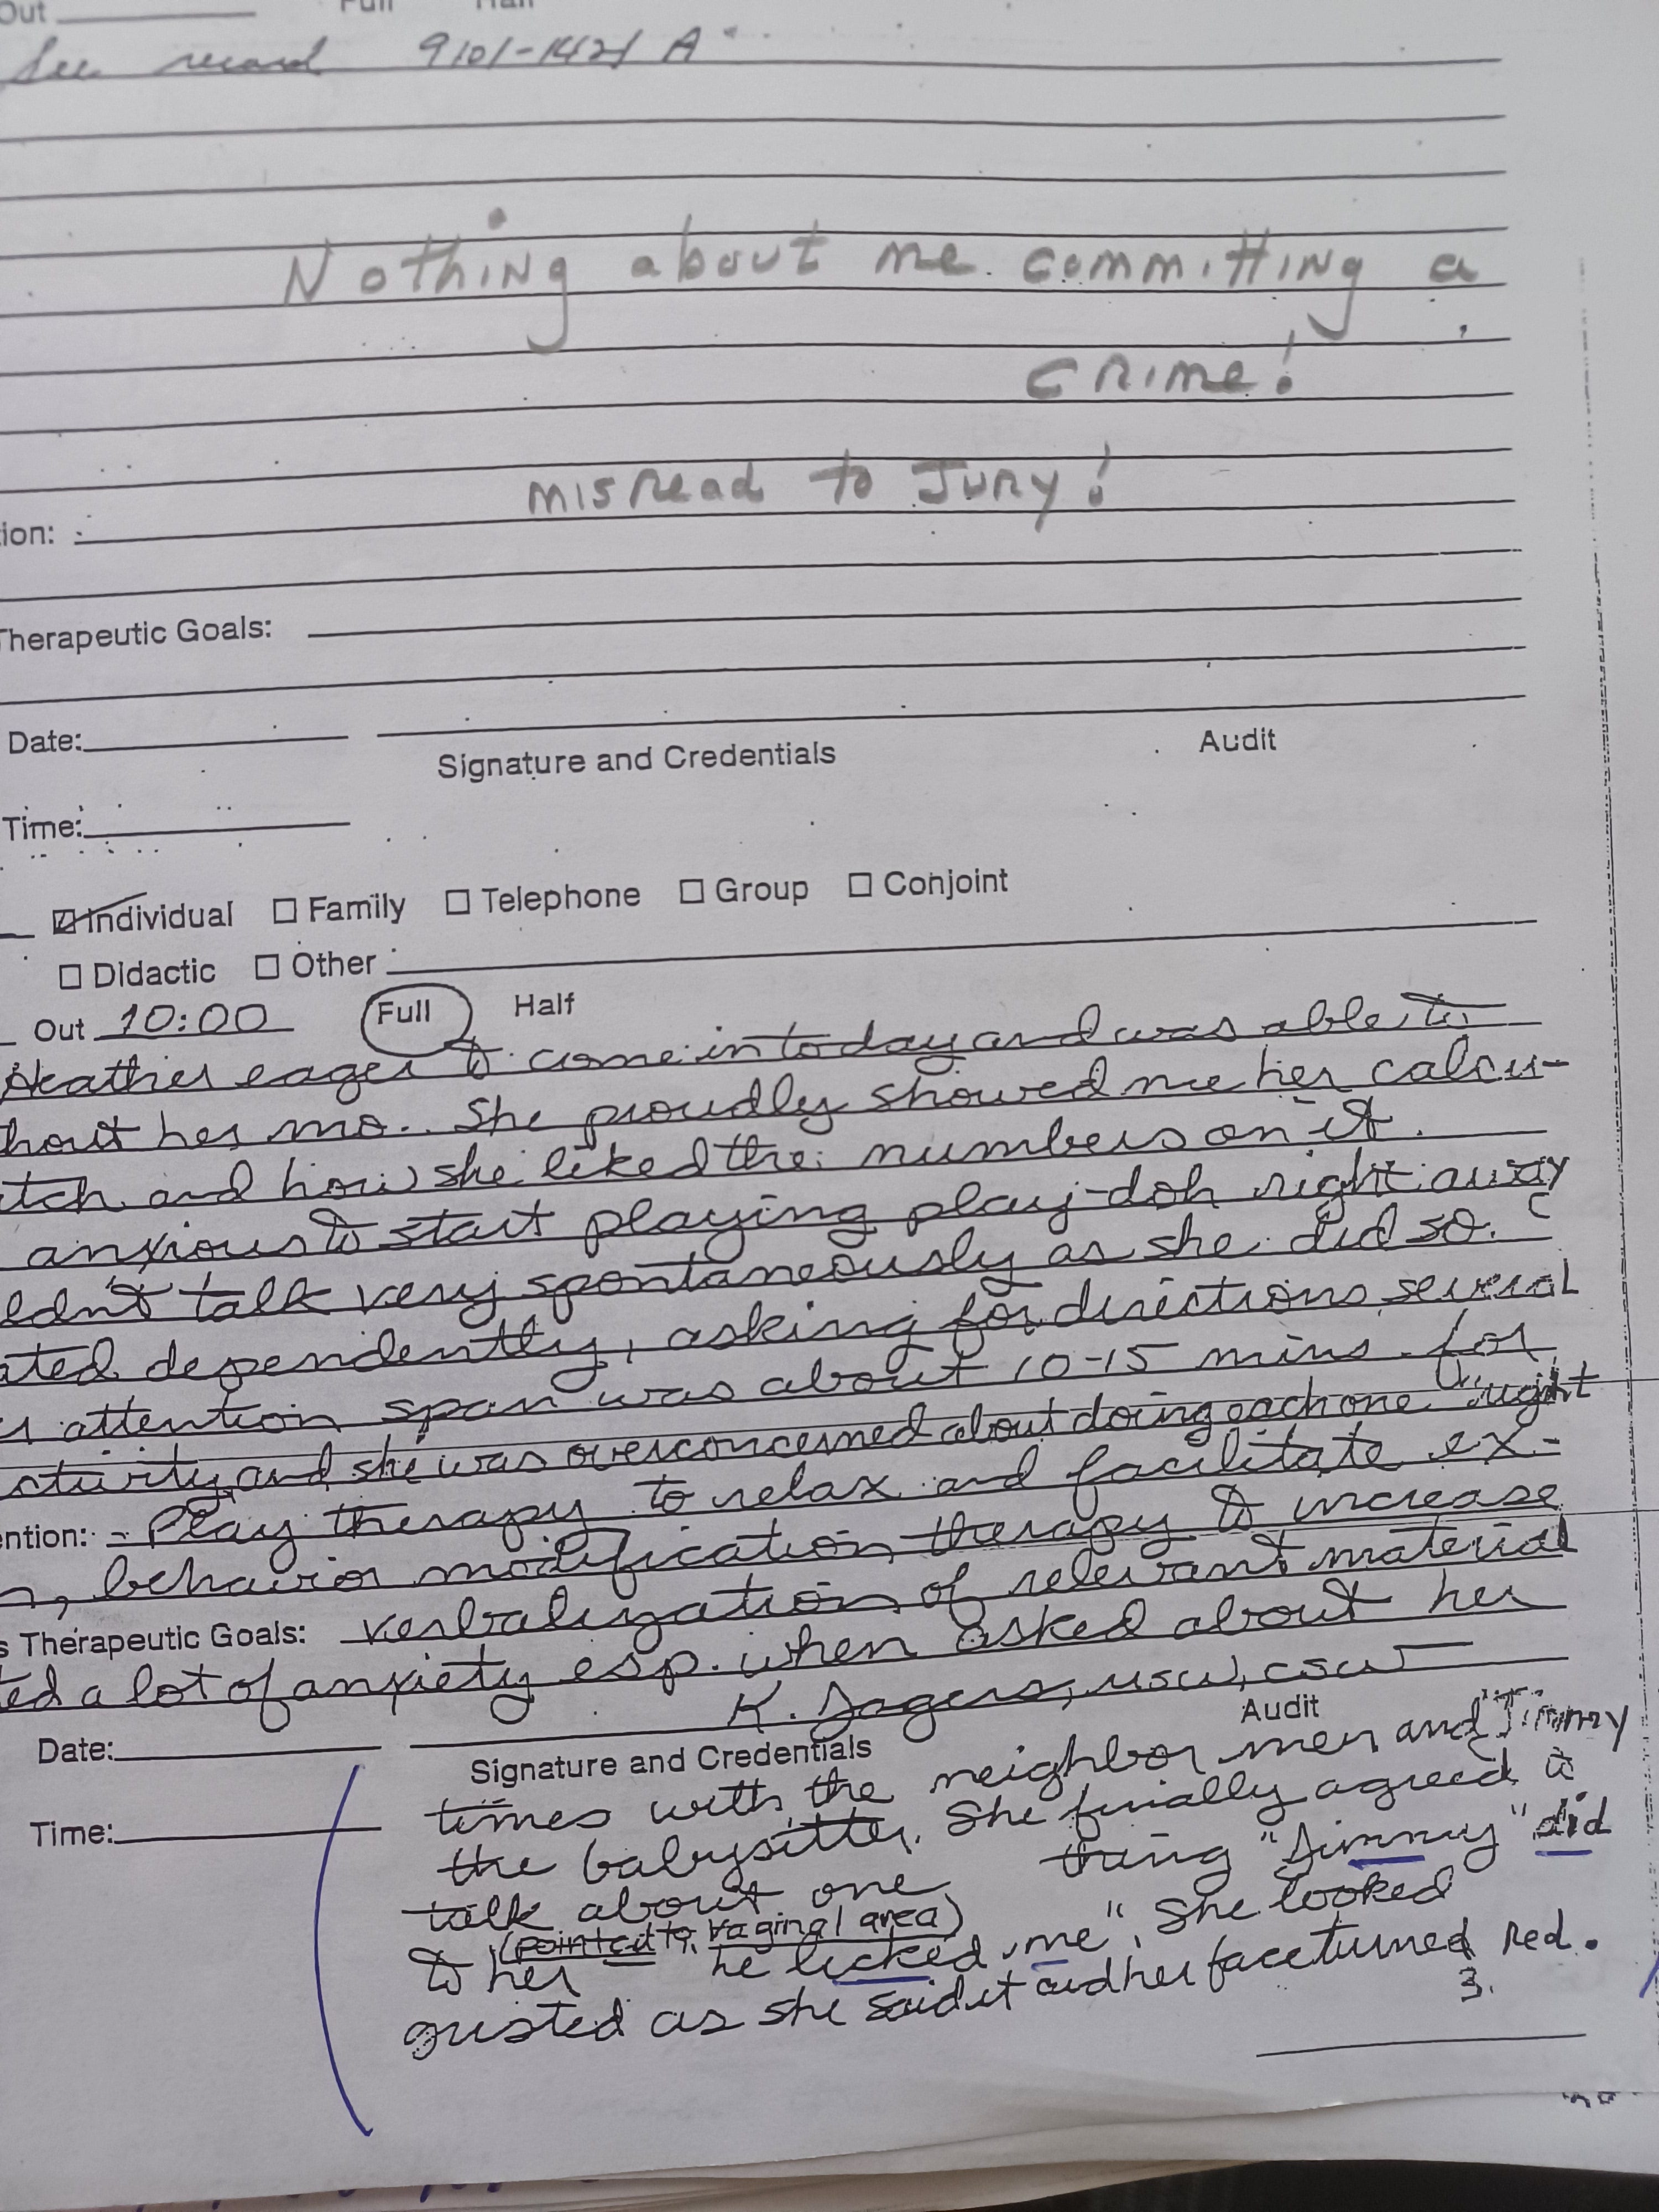 Out Full Half
See record 9101-1421 A
Nothing about me committing a
crime!
misread to Jury!
tion:
Therapeutic Goals:
Date:
Signature and Credentials Audit
Time:
Individual Family Telephone Group Conjoint
Didactic Other
Out 10:00 Full Half
Heather eager to come in today and was able to
hout her mo.. She proudly showed me her calcu-
tch and how she liked the numbers on it.
anxious to start playing play-doh right away
ldn't talk very spontaneously as she did so.
ated dependently, asking for directions several
attention span was about 10-15 mins. for
ctivity, and she was overconcerned about doing each one "right
ention: - Play therapy to relax and facilitate ex-
n, behavior modification therapy to increase
s Therapeutic Goals: verbalization of relevant material
ted a lot of anxiety esp. when asked about her
K. Jagers, MSW, CSW
Audit
Date:
Signature and Credentials
times with the neighbor men and "Jimmy
Time:
the babysitter. She finally agreed to
talk about one thing "Jimmy" did
(pointed to vaginal area)
to her "he licked me". She looked
gusted as she said it and her face turned red.
3.